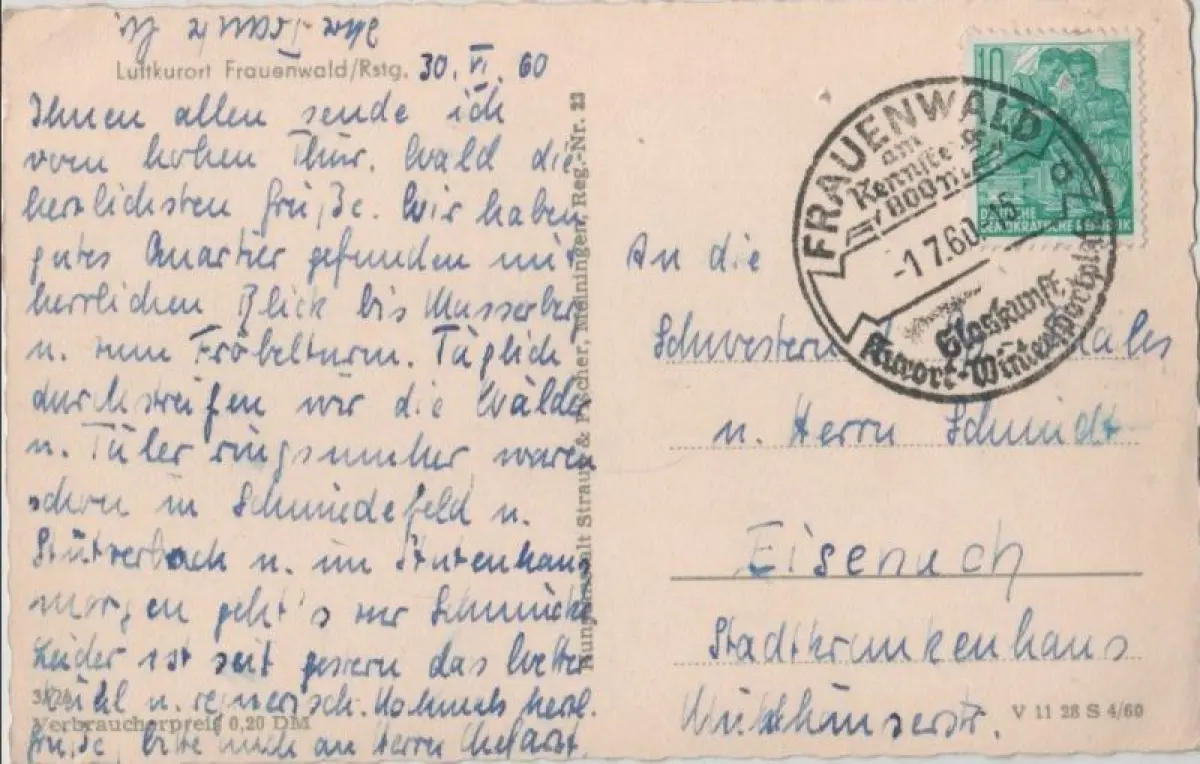 Luftkurort Frauenwald/Rstg. 30. VI. 60
Ihnen allen sende ich
vom hohen Thür. Wald die
herrlichsten Grüße. Wir haben
gutes Quartier gefunden mit
herrlichen Blick bis Masserberg
u. zum Fröbelturm. Täglich
durchstreifen wir die Wälder
u. Täler ringsumher, waren
schon in Schmiedefeld u.
Stützerbach u. im Stutenhaus
morgen geht's zur Schmücke
Leider ist seit gestern das Wetter
kühl u. regnerisch. Nochmals herzl.
Grüße, bitte auch an Herrn Chefarzt.
Verbraucherpreis 0,20 DM
Straub & Fischer, Meiningen, Reg.-Nr. 23
10
DEUTSCHE
DEMOKRATISCHE REPUBLIK
FRAUENWALD
am
Rennsteig
800 m
-1.7.60.-16
Glaskunst
Kurort-Wintersportplatz
An die
Schwestern
u. Herrn Schmidt
Eisenach
Stadtkrankenhaus
Mühlhäuserstr.
V 11 28 S 4/60